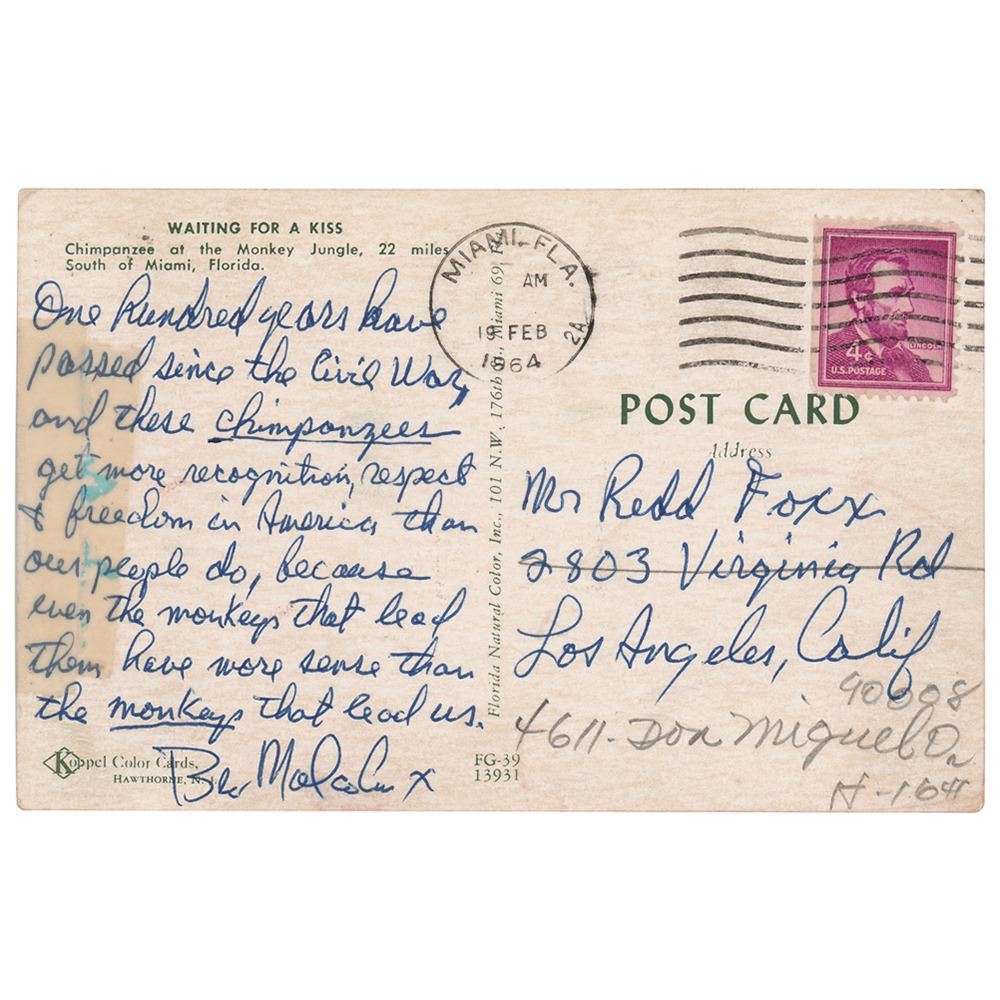 WAITING FOR A KISS
Chimpanzee at the Monkey Jungle, 22 miles
South of Miami, Florida.
One hundred years have
passed since the Civil War,
and these chimpanzees
get more recognition, respect
& freedom in America than
our people do, because
even the monkeys that lead
them have more sense than
the monkeys that lead us.
Bro Malcolm X
Koppel Color Cards,
HAWTHORNE, N. J.
FG-39
13931
Florida Natural Color, Inc., 101 N.W. 176th St. Miami 69,
MIAMI, FLA.
AM
19 FEB
1964
2A
4¢
LINCOLN
U.S. POSTAGE
POST CARD
Address
Mr Redd Foxx
2803 Virginia Rd
Los Angeles, Calif
90008
4611-Don Miguel Dr